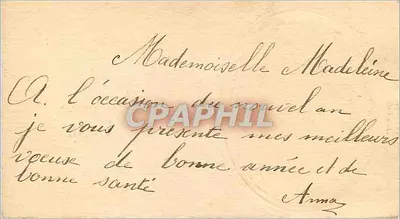 Mademoiselle Madeleine
A l'occasion du nouvel an
CPAPHIL
je vous présente mes meilleurs
voeuse de bonne année et de
bonne santé
Anna